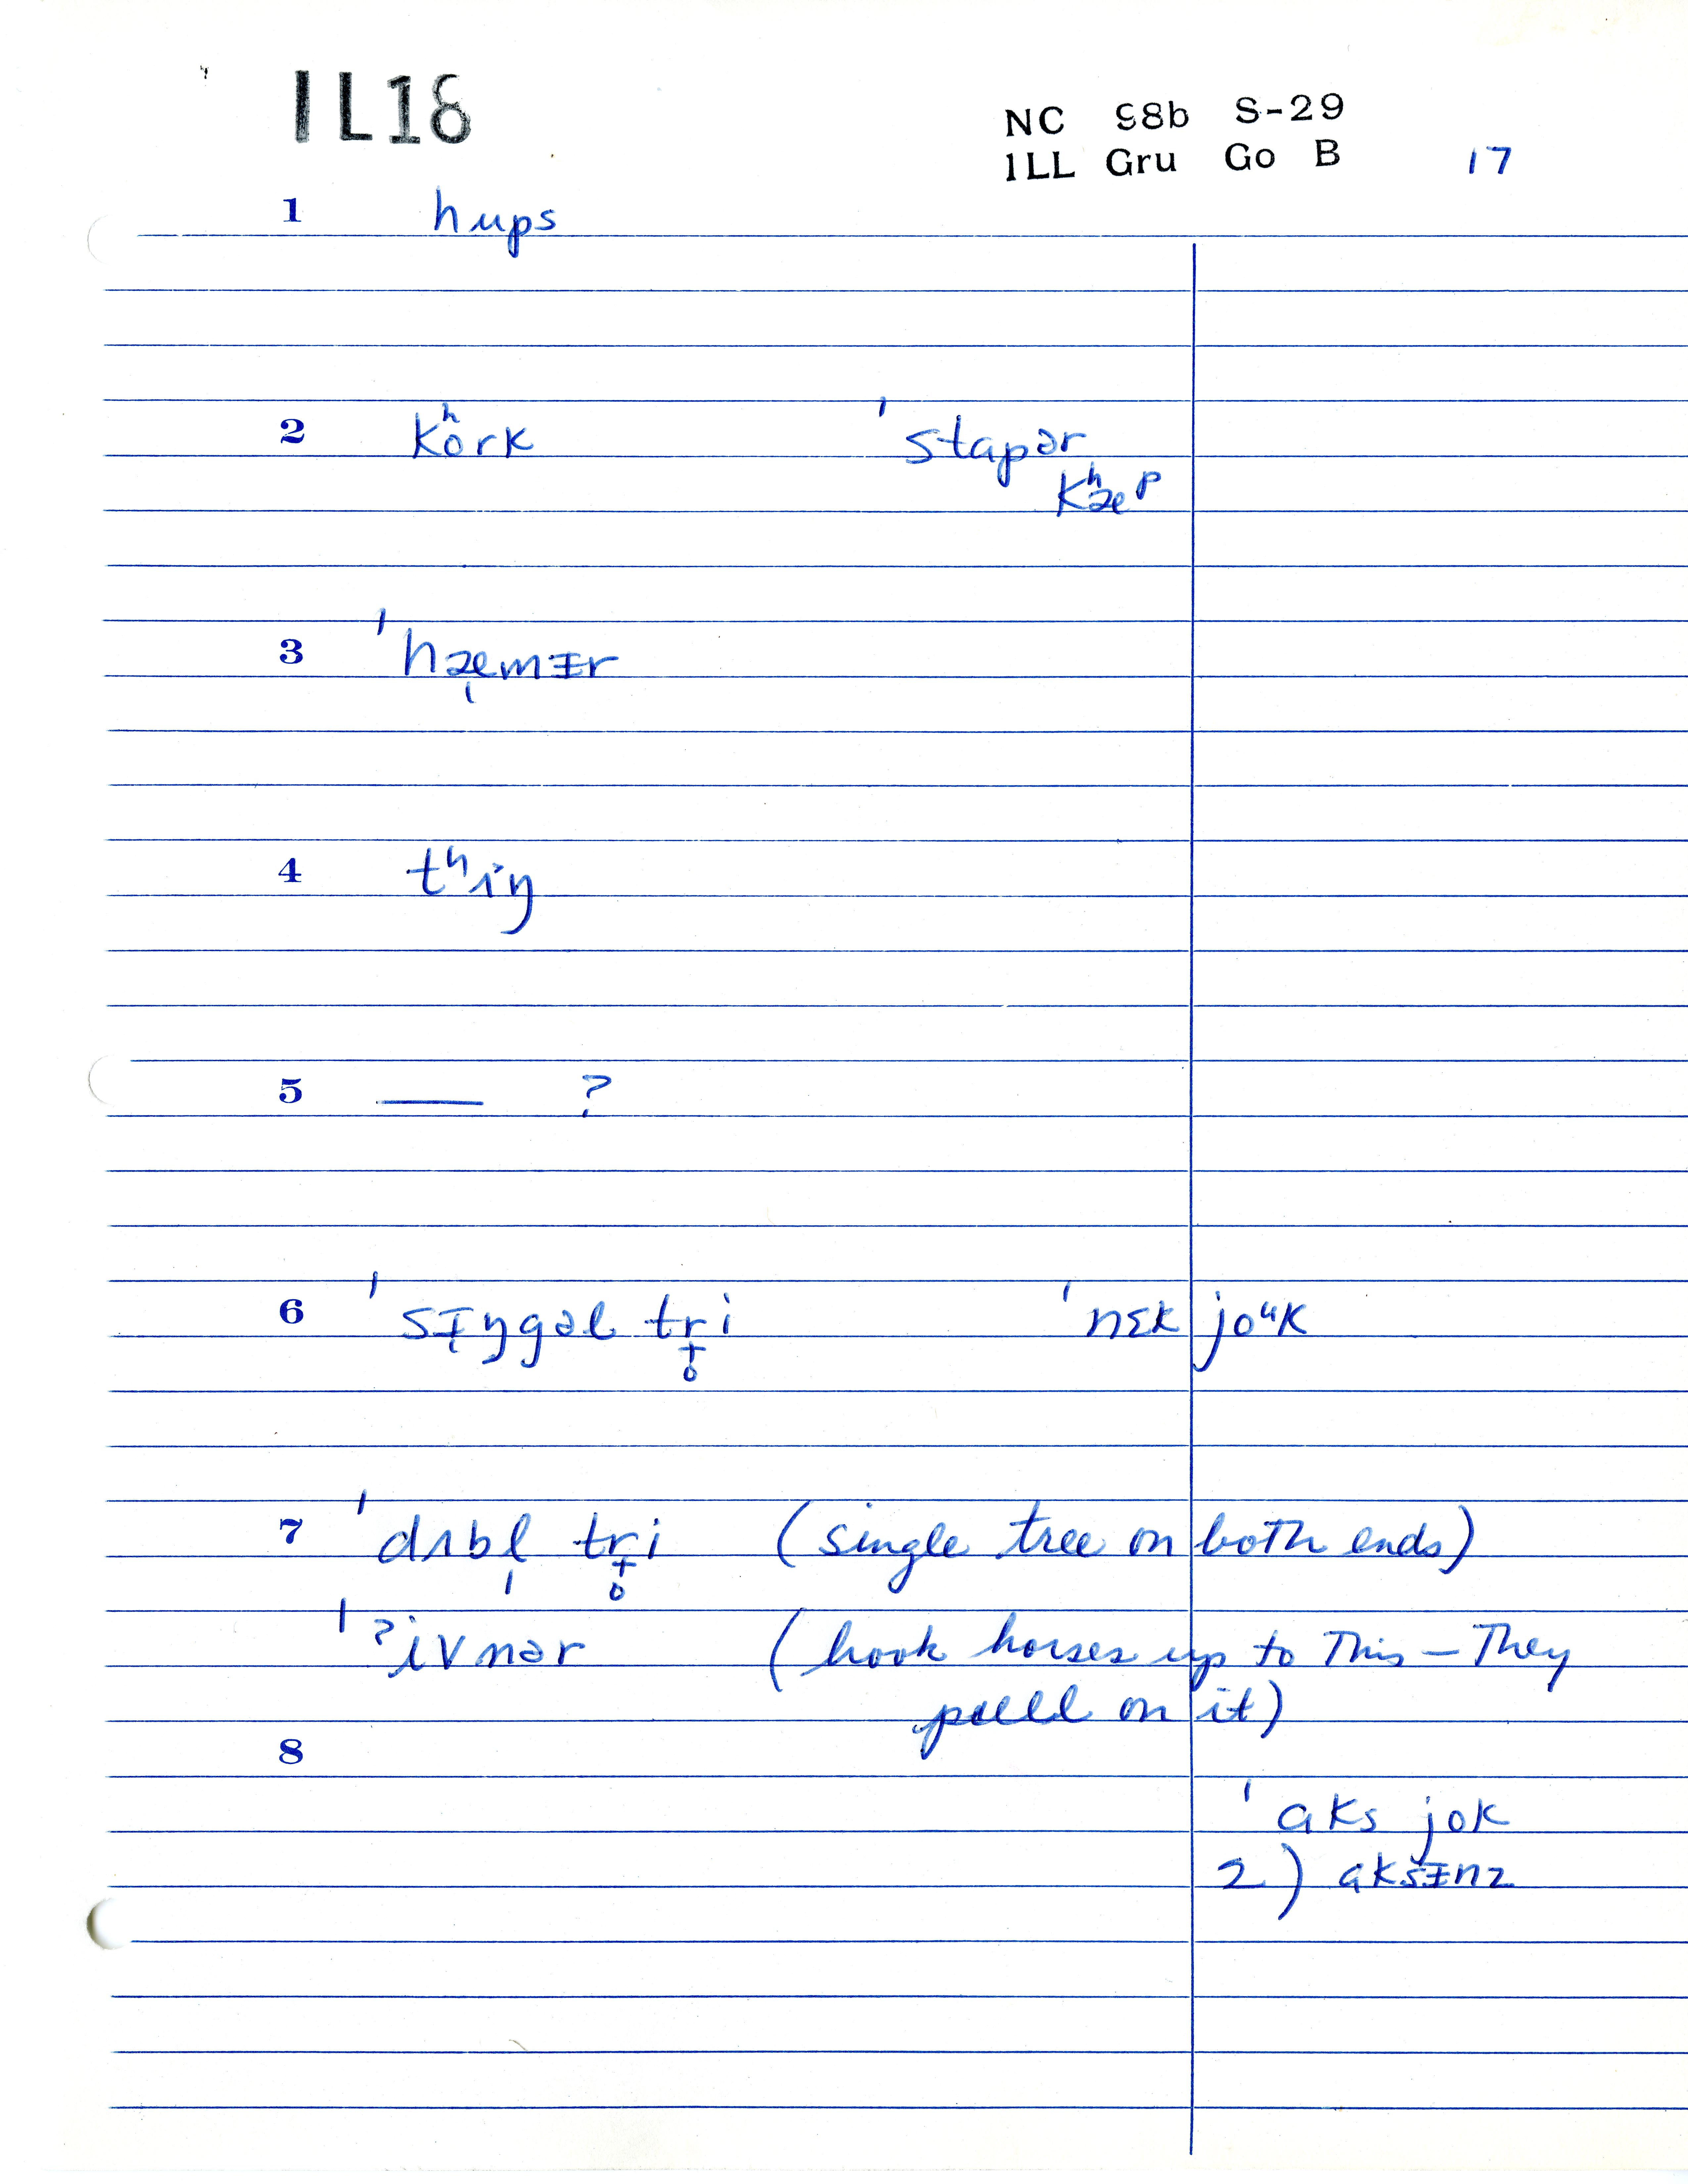 IL18
NC 98b S-29
ILL Gru Go B 17
1 hups
2 kʰork ˈstapər
kʰæp
3 ˈhæmɪ̵r
4 tʰiŋ
5 — ?
6 ˈsɪŋgəl tri ˈnɛk joᵘk
7 ˈdʌbl̩ tri (single tree on both ends)
ˈʔivnər (hook horses up to This — They
pull on it)
8
ˈaks jok
2) aksɪ̵nz